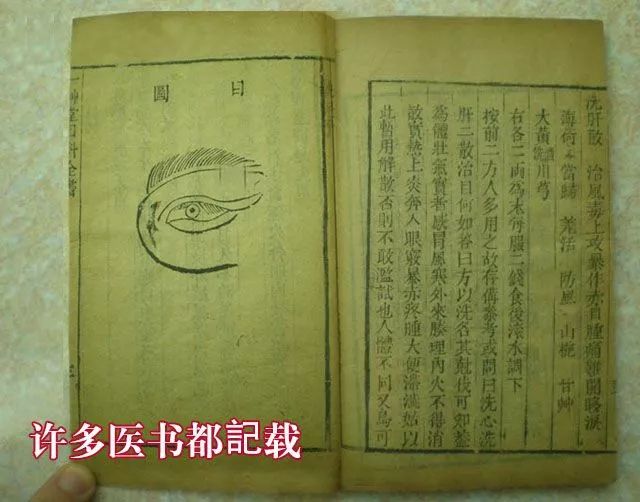 洗肝散 治風毒上攻暴作赤目腫痛難開眵淚
薄荷 當歸 羌活 防風 山梔 甘艸
大黃 川芎
右各二両為末每服二錢食後滚水調下
按前二方人多用之故存傳參考或問曰洗心洗
肝二散治目何如答曰方以洗名其尅伐可知葢
為體壯氣實者感冒風寒外來腠理內火不得消
散實熱上炎奔入眼竅暴赤疼腫大便濇滯始以
此暫用解散否則不敢濫試也人體不同又烏可
目圖
许多医书都記载